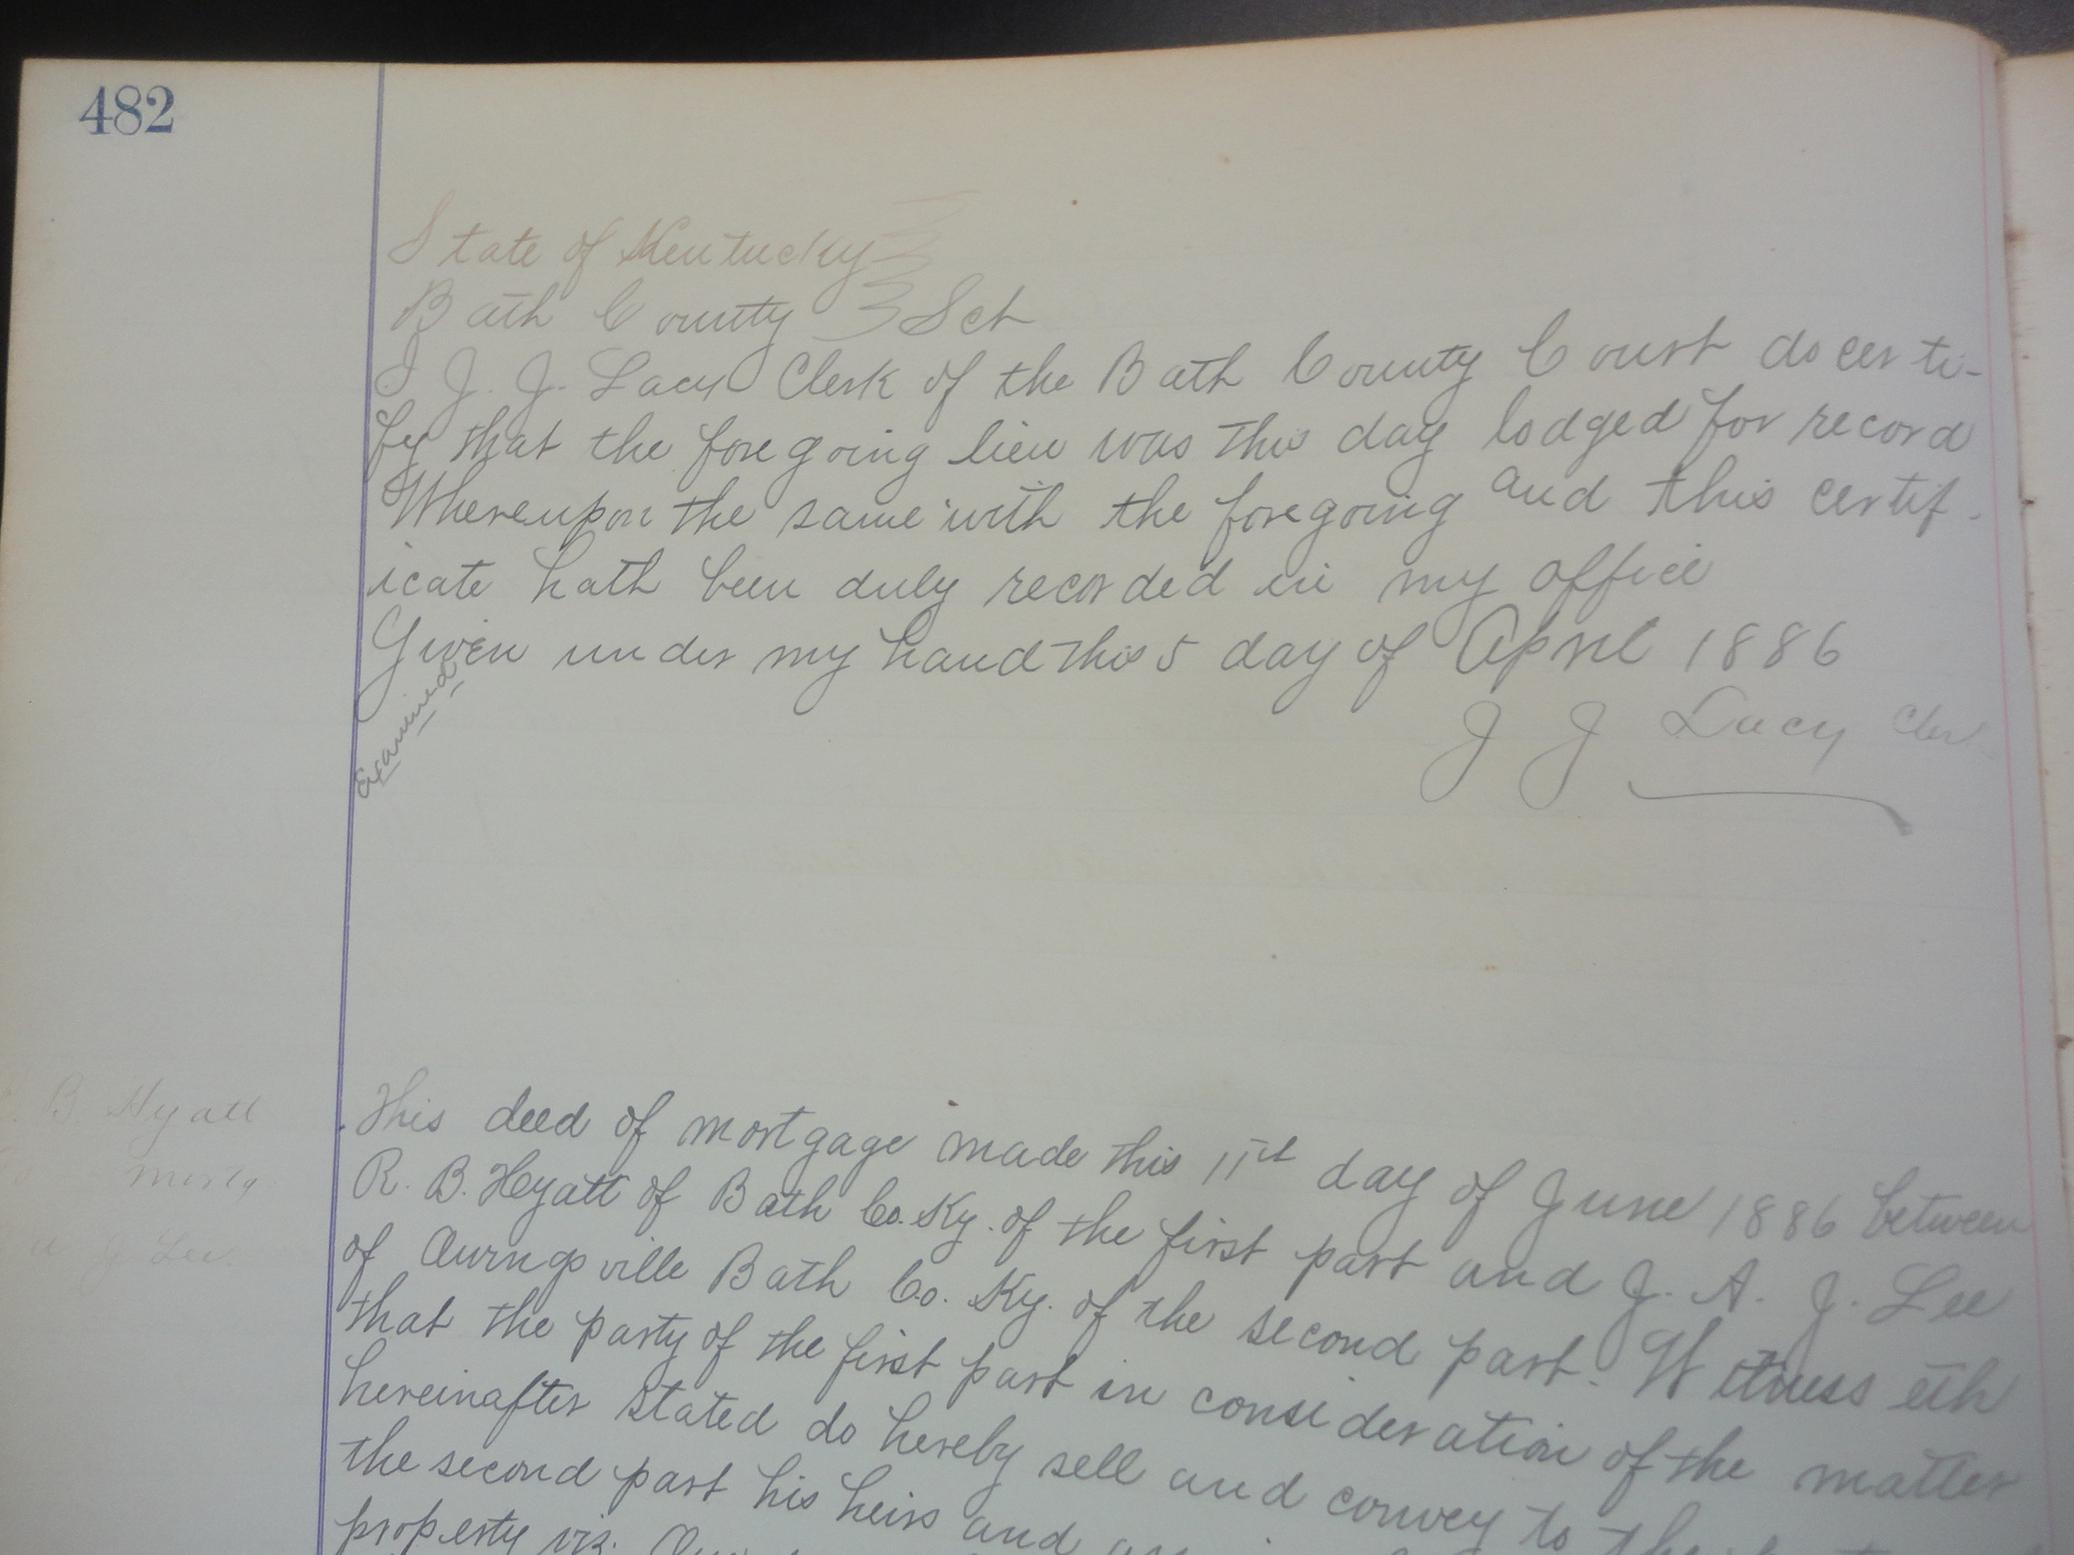 482
State of Kentucky
Bath County } Sct
I J. J. Lacy Clerk of the Bath County Court do certi-
fy that the foregoing lien was this day lodged for record
Whereupon the same with the foregoing and this certif-
icate hath been duly recorded in my office
Given under my hand this 5 day of April 1886
J J Lacy Cler
Examined
B. Hyatt
Mortg.
J Lee.
This deed of mortgage made this 11st day of June 1886 between
R. B. Hyatt of Bath Co. Ky. of the first part and J. A. J. Lee
of Owingsville Bath Co. Ky. of the second part. Witnesseth
that the party of the first part in consideration of the matter
hereinafter stated do hereby sell and convey to the
the second part his heirs and
property viz.